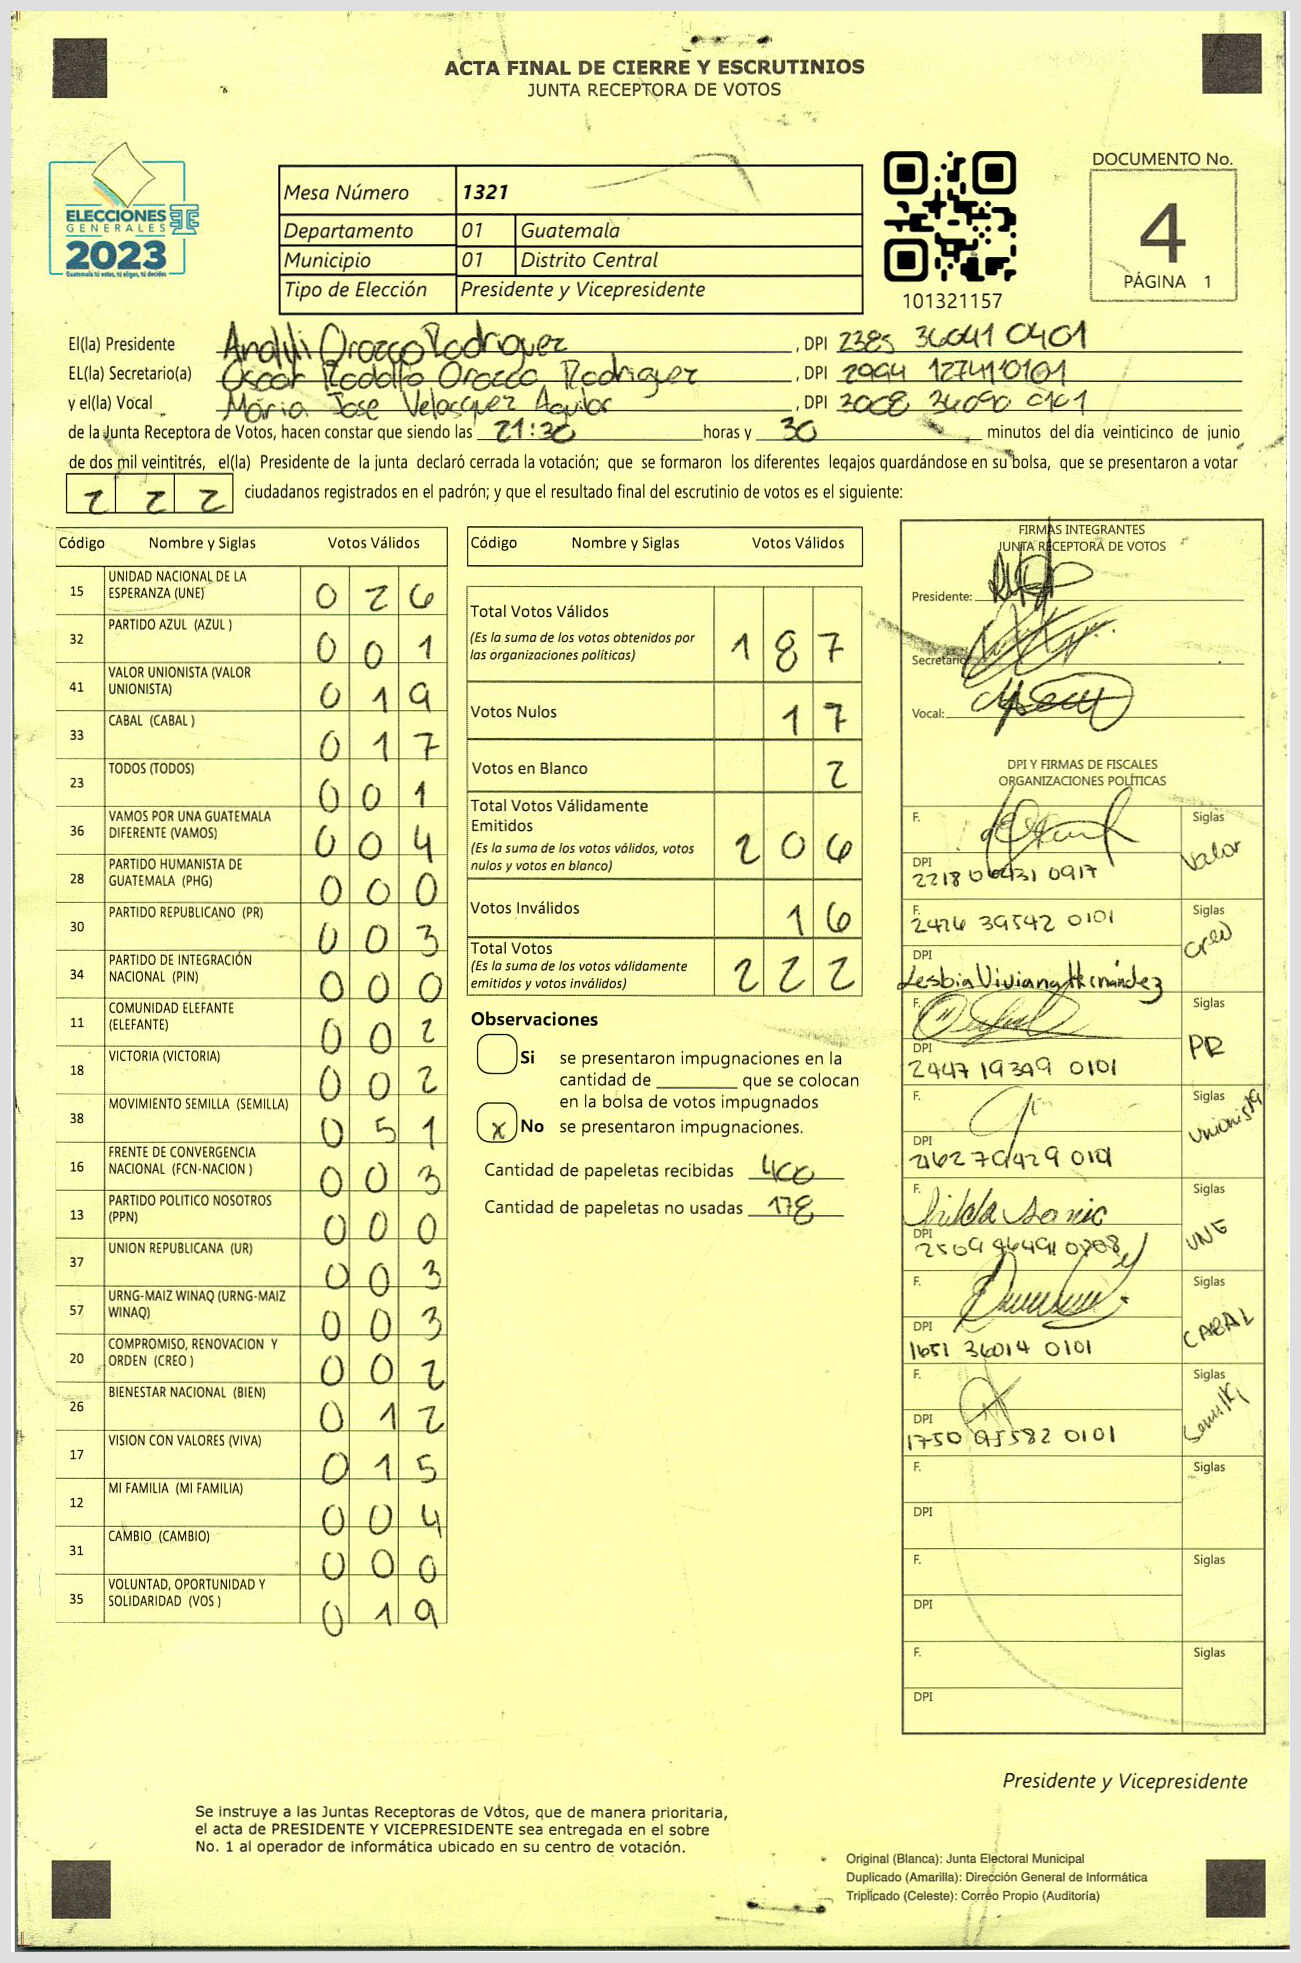 ACTA FINAL DE CIERRE Y ESCRUTINIOS
JUNTA RECEPTORA DE VOTOS
ELECCIONES
GENERALES
2023
Guatemala tú votas, tú eliges, tú decides
Mesa Número 1321
Departamento 01 Guatemala
Municipio 01 Distrito Central
Tipo de Elección Presidente y Vicepresidente
101321157
DOCUMENTO No.
4
PÁGINA 1
El(la) Presidente Orozco Rodriguez, DPI 2385 36041 0401
EL(la) Secretario(a) Oscar Rodolfo Orozco Rodriguez, DPI 2994 12741 0101
y el(la) Vocal Maria Jose Velasquez Aguilar, DPI 3008 36090 0101
de la Junta Receptora de Votos, hacen constar que siendo las 21:30 horas y 30 minutos del día veinticinco de junio
de dos mil veintitrés, el(la) Presidente de la junta declaró cerrada la votación; que se formaron los diferentes legajos guardándose en su bolsa, que se presentaron a votar
222 ciudadanos registrados en el padrón; y que el resultado final del escrutinio de votos es el siguiente:
Código Nombre y Siglas Votos Válidos
15 UNIDAD NACIONAL DE LA ESPERANZA (UNE) 026
32 PARTIDO AZUL (AZUL ) 001
41 VALOR UNIONISTA (VALOR UNIONISTA) 019
33 CABAL (CABAL ) 017
23 TODOS (TODOS) 001
36 VAMOS POR UNA GUATEMALA DIFERENTE (VAMOS) 004
28 PARTIDO HUMANISTA DE GUATEMALA (PHG) 000
30 PARTIDO REPUBLICANO (PR) 003
34 PARTIDO DE INTEGRACIÓN NACIONAL (PIN) 000
11 COMUNIDAD ELEFANTE (ELEFANTE) 002
18 VICTORIA (VICTORIA) 002
38 MOVIMIENTO SEMILLA (SEMILLA) 051
16 FRENTE DE CONVERGENCIA NACIONAL (FCN-NACION ) 003
13 PARTIDO POLITICO NOSOTROS (PPN) 000
37 UNION REPUBLICANA (UR) 003
57 URNG-MAIZ WINAQ (URNG-MAIZ WINAQ) 003
20 COMPROMISO, RENOVACION Y ORDEN (CREO ) 002
26 BIENESTAR NACIONAL (BIEN) 012
17 VISION CON VALORES (VIVA) 015
12 MI FAMILIA (MI FAMILIA) 004
31 CAMBIO (CAMBIO) 000
35 VOLUNTAD, OPORTUNIDAD Y SOLIDARIDAD (VOS ) 019
Código Nombre y Siglas Votos Válidos
Total Votos Válidos 187
(Es la suma de los votos obtenidos por
las organizaciones políticas)
Votos Nulos 17
Votos en Blanco 2
Total Votos Válidamente
Emitidos 206
(Es la suma de los votos válidos, votos
nulos y votos en blanco)
Votos Inválidos 16
Total Votos 222
(Es la suma de los votos válidamente
emitidos y votos inválidos)
Observaciones
Si se presentaron impugnaciones en la
cantidad de ________ que se colocan
en la bolsa de votos impugnados
x No se presentaron impugnaciones.
Cantidad de papeletas recibidas 400
Cantidad de papeletas no usadas 178
FIRMAS INTEGRANTES
JUNTA RECEPTORA DE VOTOS
Presidente:
Secretario:
Vocal:
DPI Y FIRMAS DE FISCALES
ORGANIZACIONES POLÍTICAS
F. Siglas Valor
DPI
F. 2426 39542 0101 Siglas Creo
DPI Lesbia Viviana Hernández
F. Siglas PR
DPI 2447 19349 0101
F. Siglas Unionista
DPI
F. Hilda Sanic Siglas UNE
DPI
F. Siglas CABAL
DPI 1651 36014 0101
F. Siglas Semilla
DPI 1750 95582 0101
F. Siglas
DPI
F. Siglas
DPI
F. Siglas
DPI
Presidente y Vicepresidente
Se instruye a las Juntas Receptoras de Votos, que de manera prioritaria,
el acta de PRESIDENTE Y VICEPRESIDENTE sea entregada en el sobre
No. 1 al operador de informática ubicado en su centro de votación.
Original (Blanca): Junta Electoral Municipal
Duplicado (Amarilla): Dirección General de Informática
Triplicado (Celeste): Correo Propio (Auditoría)